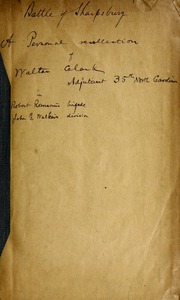 Battle of Sharpsburg
A Personal recollection
of
Walter Clark
Adjutant 35th North Carolina
in
Robert Ransom's brigade
John G Walker's division